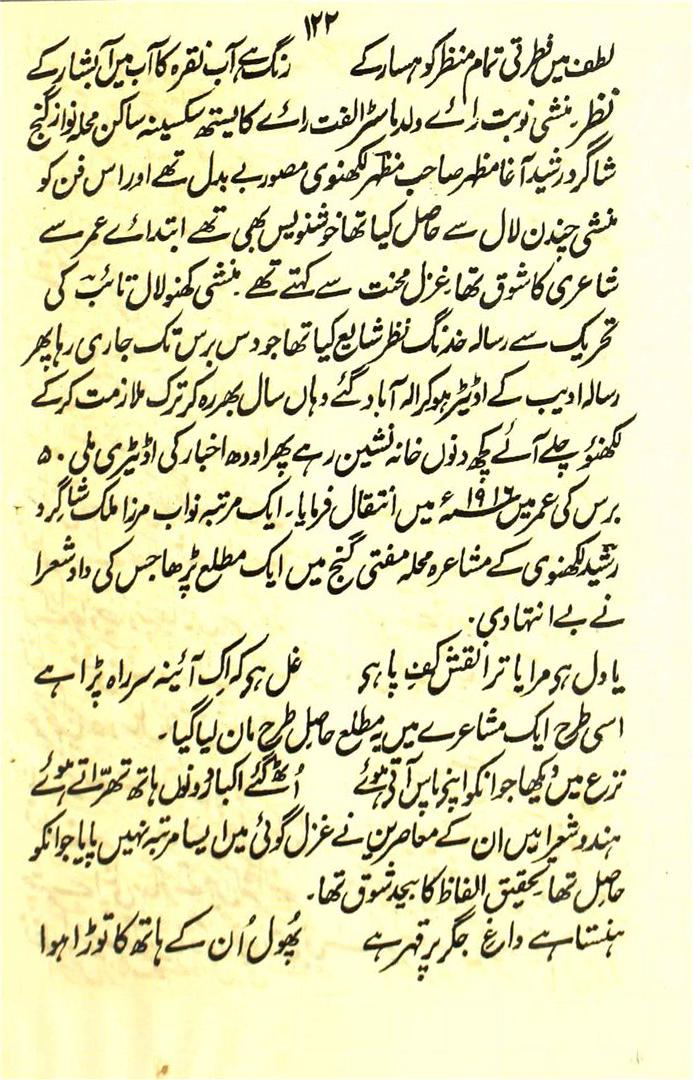 ۱۲۲
لطف ہیں فطرتی تمام منظر کوہسار کے رنگ ہے آب نقرہ کا آب میں آبشار کے
نظر۔ منشی نوبت رائے ولد ماسٹر الفت رائے کایستھ سکسینہ ساکن محلہ نواز گنج
شاگرد رشید آغا مظہر صاحب مظہر لکھنوی مصور بے بدل تھے اور اس فن کو
منشی چندن لال سے حاصل کیا تھا خوشنویس بھی تھے ابتدائے عمر سے
شاعری کا شوق تھا۔ غزل محنت سے کہتے تھے۔ منشی کھنولال تائب کی
تحریک سے رسالہ خدنگ نظر شایع کیا تھا جو دس برس تک جاری رہا پھر
رسالہ ادیب کے اڈیٹر ہو کر الہ آباد گئے وہاں سال بھر رہ کر ترک ملازمت کر کے
لکھنؤ چلے آئے کچھ دنوں خانہ نشین رہے پھر اودھ اخبار کی اڈیٹری ملی ۵۰
برس کی عمر میں ۱۹۱۶ء میں انتقال فرمایا۔ ایک مرتبہ نواب مرزا ملک شاگرد
رشید لکھنوی کے مشاعرہ محلہ مفتی گنج میں ایک مطلع پڑھا جس کی داد شعرا
نے بے انتہا دی۔
یا دل ہی مرا یا ترا نقش کفِ پا ہی غل ہی کہ اِک آئینہ سر راہ پڑا ہے
اسی طرح ایک مشاعرے میں یہ مطلع حاصل طرح مان لیا گیا۔
نزع میں دیکھا جو انکو اپنی پاس آتی ہوئے اُٹھ گئے اکبار دونوں ہاتھ تھرّاتے ہوئے
ہندو شعرا میں ان کے معاصرین نے غزل گوئی میں ایسا مرتبہ نہیں پایا جو انکو
حاصل تھا۔ تحقیق الفاظ کا بیحد شوق تھا۔
ہنستا ہے داغ جگر پر قہر ہے پھول اُن کے ہاتھ کا توڑا ہوا